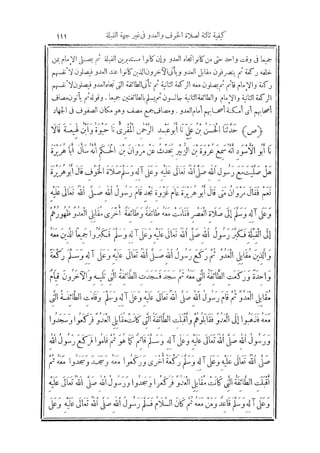 كيفية ثالثة لصلاة الخوف والعدو في غير جهة القبلة ١١١
جميعا فى وقت واحد حتى من كانوا تجاه العدو وإن كانوا مستدبرين القبلة ثم يصلى الإمام بمن
خلفه ركعة ثم ينصرفون مقابل العدو ويأتى الآخرون الذين كانوا عند العدو فيصلون لأنفسهم
ركعة والإمام قائم ثم يصلون معه الركعة الثانية ثم تأتى الطائفة التى تجاه العدو فيصلون لأنفسهم
الركعة الثانية والإمام والطائفة الثانية جالسون ثم يسلم بالطائفتين جميعا. وقوله ثم يأتون مصاف
أصحابهم أى أمكنة أصحابهم أمام العدو. ومصاف جمع مصف وهو مكان الصفوف فى الجهاد
(ص) حَدَّثَنَا الْحَسَنُ بْنُ عَلِيٍّ نَا أَبُو عَبْدِ الرَّحْمَنِ الْمُقْرِئُ نَا حَيْوَةُ وَابْنُ لَهِيعَةَ قَالَا
نَا أَبُو الْأَسْوَدِ أَنَّهُ سَمِعَ عُرْوَةَ بْنَ الزُّبَيْرِ يُحَدِّثُ عَنْ مَرْوَانَ بْنِ الْحَكَمِ أَنَّهُ سَأَلَ أَبَا هُرَيْرَةَ
هَلْ صَلَّيْتَ مَعَ رَسُولِ اللهِ صَلَّى اللهُ تَعَالَى عَلَيْهِ وَعَلَى آلِهِ وَسَلَّمَ صَلَاةَ الْخَوْفِ قَالَ أَبُو هُرَيْرَةَ
نَعَمْ فَقَالَ مَرْوَانُ مَتَى قَالَ أَبُو هُرَيْرَةَ عَامَ غَزْوَةِ نَجْدٍ قَامَ رَسُولُ اللهِ صَلَّى اللهُ تَعَالَى عَلَيْهِ
وَعَلَى آلِهِ وَسَلَّمَ إِلَى صَلَاةِ الْعَصْرِ فَقَامَتْ مَعَهُ طَائِفَةٌ وَطَائِفَةٌ أُخْرَى مُقَابِلِي الْعَدُوِّ ظُهُورُهُمْ
إِلَى الْقِبْلَةِ فَكَبَّرَ رَسُولُ اللهِ صَلَّى اللهُ تَعَالَى عَلَيْهِ وَعَلَى آلِهِ وَسَلَّمَ فَكَبَّرُوا جَمِيعًا الَّذِينَ مَعَهُ
وَالَّذِينَ مُقَابِلِي الْعَدُوِّ ثُمَّ رَكَعَ رَسُولُ اللهِ صَلَّى اللهُ تَعَالَى عَلَيْهِ وَعَلَى آلِهِ وَسَلَّمَ رَكْعَةً
وَاحِدَةً وَرَكَعَتِ الطَّائِفَةُ الَّتِي مَعَهُ ثُمَّ سَجَدَ فَسَجَدَتِ الطَّائِفَةُ الَّتِي تَلِيهِ وَالْآخَرُونَ قِيَامٌ
مُقَابِلِي الْعَدُوِّ ثُمَّ قَامَ رَسُولُ اللهِ صَلَّى اللهُ تَعَالَى عَلَيْهِ وَعَلَى آلِهِ وَسَلَّمَ وَقَامَتِ الطَّائِفَةُ الَّتِي
مَعَهُ فَذَهَبُوا إِلَى الْعَدُوِّ فَقَابَلُوهُمْ وَأَقْبَلَتِ الطَّائِفَةُ الَّتِي كَانَتْ مُقَابِلِي الْعَدُوِّ فَرَكَعُوا وَسَجَدُوا
وَرَسُولُ اللهِ صَلَّى اللهُ تَعَالَى عَلَيْهِ وَعَلَى آلِهِ وَسَلَّمَ قَائِمٌ كَمَا هُوَ ثُمَّ قَامُوا فَرَكَعَ رَسُولُ اللهِ
صَلَّى اللهُ تَعَالَى عَلَيْهِ وَعَلَى آلِهِ وَسَلَّمَ رَكْعَةً أُخْرَى وَرَكَعُوا مَعَهُ وَسَجَدَ وَسَجَدُوا مَعَهُ ثُمَّ
أَقْبَلَتِ الطَّائِفَةُ الَّتِي كَانَتْ مُقَابِلِي الْعَدُوِّ فَرَكَعُوا وَسَجَدُوا وَرَسُولُ اللهِ صَلَّى اللهُ تَعَالَى عَلَيْهِ
وَعَلَى آلِهِ وَسَلَّمَ قَاعِدٌ وَمَنْ مَعَهُ ثُمَّ كَانَ السَّلَامُ فَسَلَّمَ رَسُولُ اللهِ صَلَّى اللهُ تَعَالَى عَلَيْهِ وَعَلَى